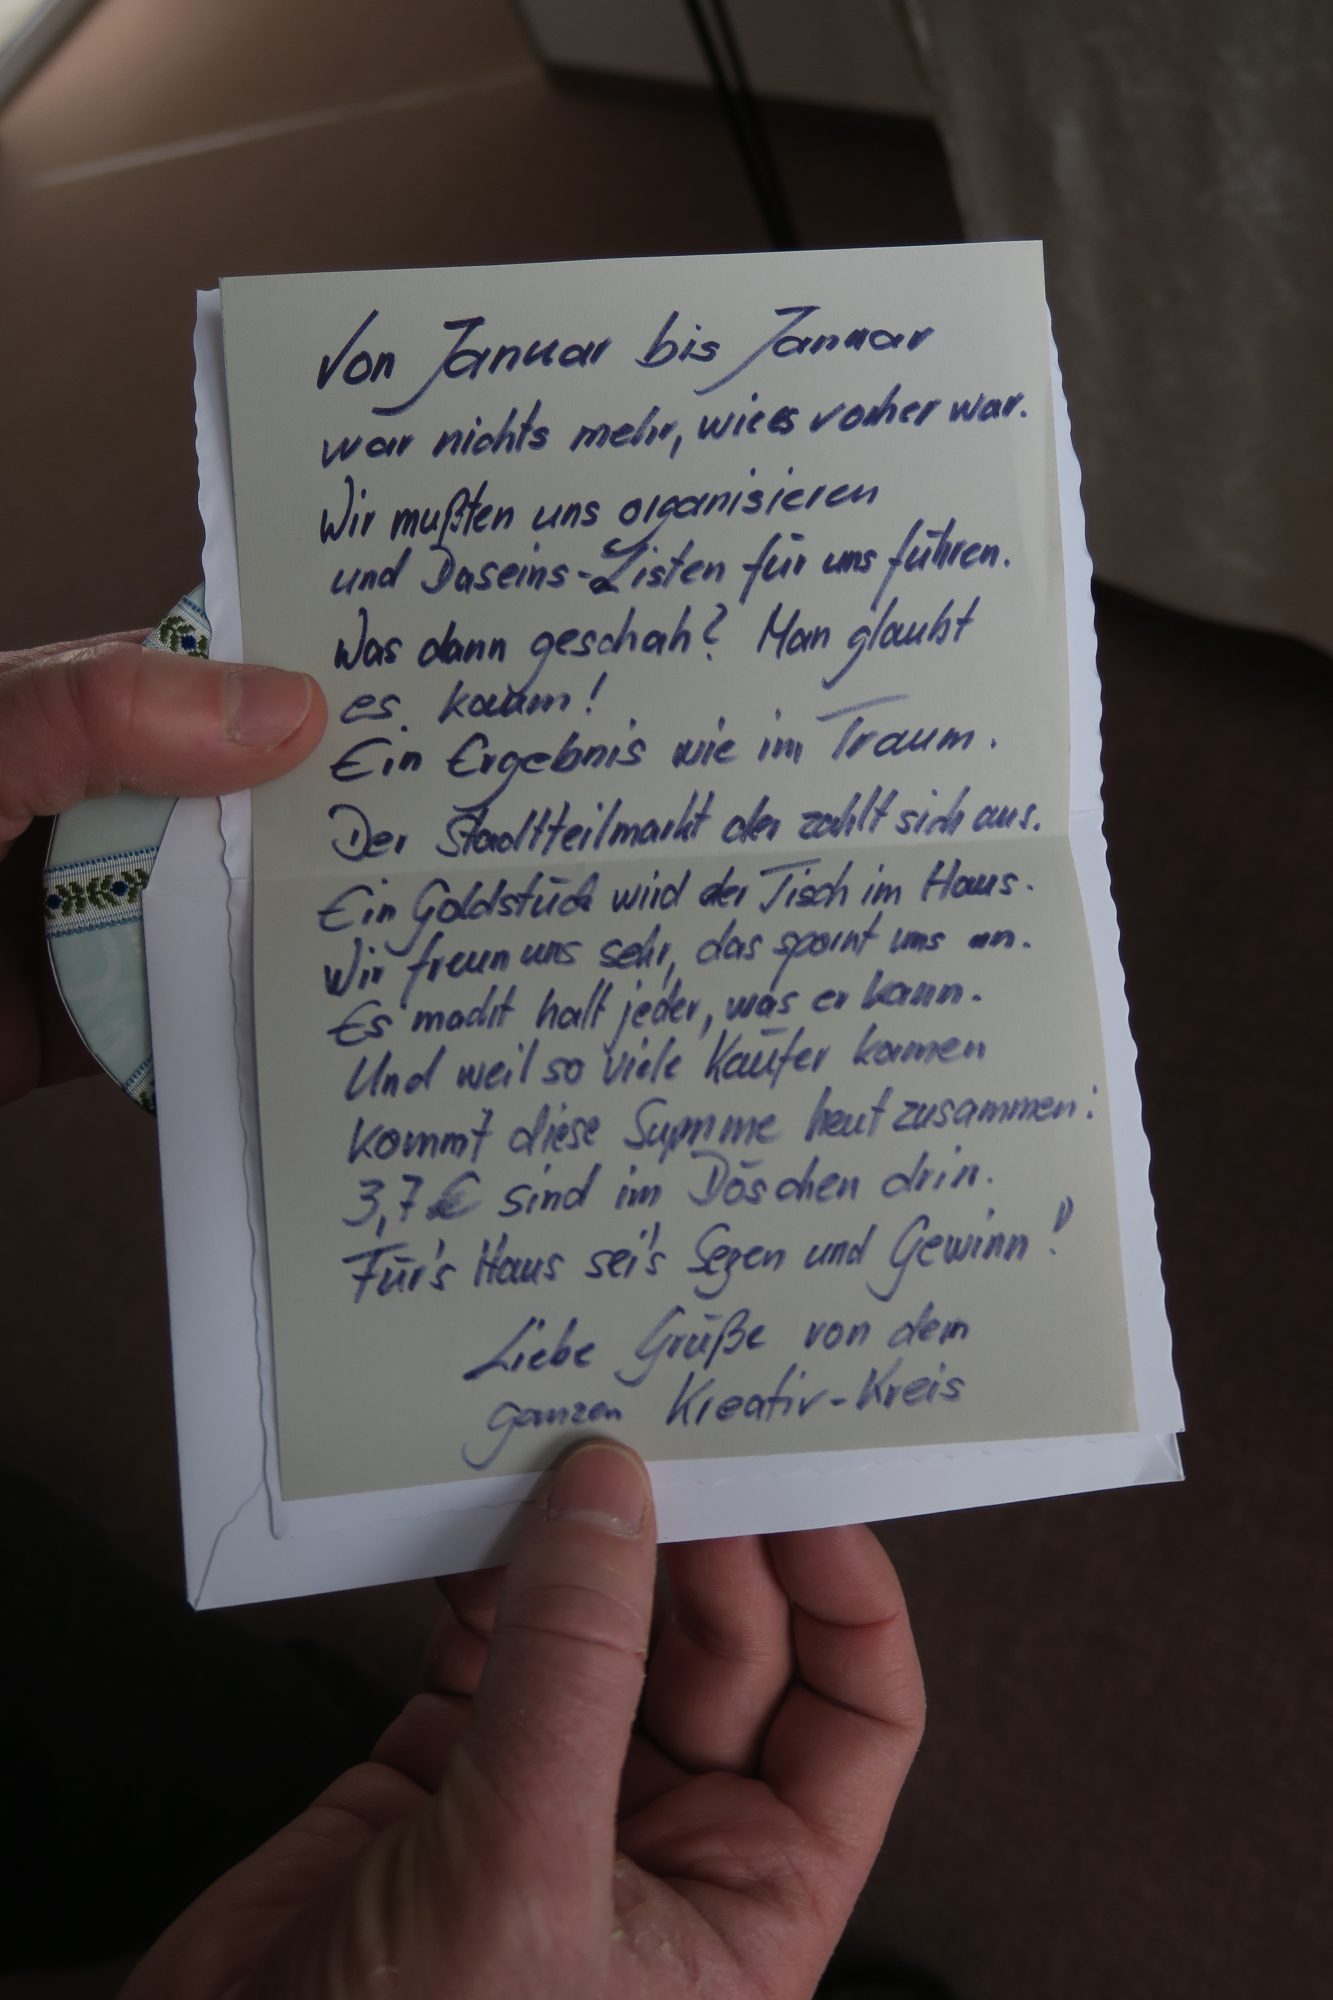 Von Januar bis Januar
war nichts mehr, wie es vorher war.
Wir mußten uns organisieren
und Daseins-Listen für uns führen.
Was dann geschah? Man glaubt
es kaum!
Ein Ergebnis wie im Traum.
Der Stadtteilmarkt der zahlt sich aus.
Ein Goldstück wird der Tisch im Haus.
Wir freun uns sehr, das spornt uns an.
Es macht halt jeder, was er kann.
Und weil so viele Käufer kamen
kommt diese Summe heut zusammen:
3,7 € sind im Döschen drin.
Für's Haus sei's Segen und Gewinn!
Liebe Grüße von dem
ganzen Kreativ-Kreis